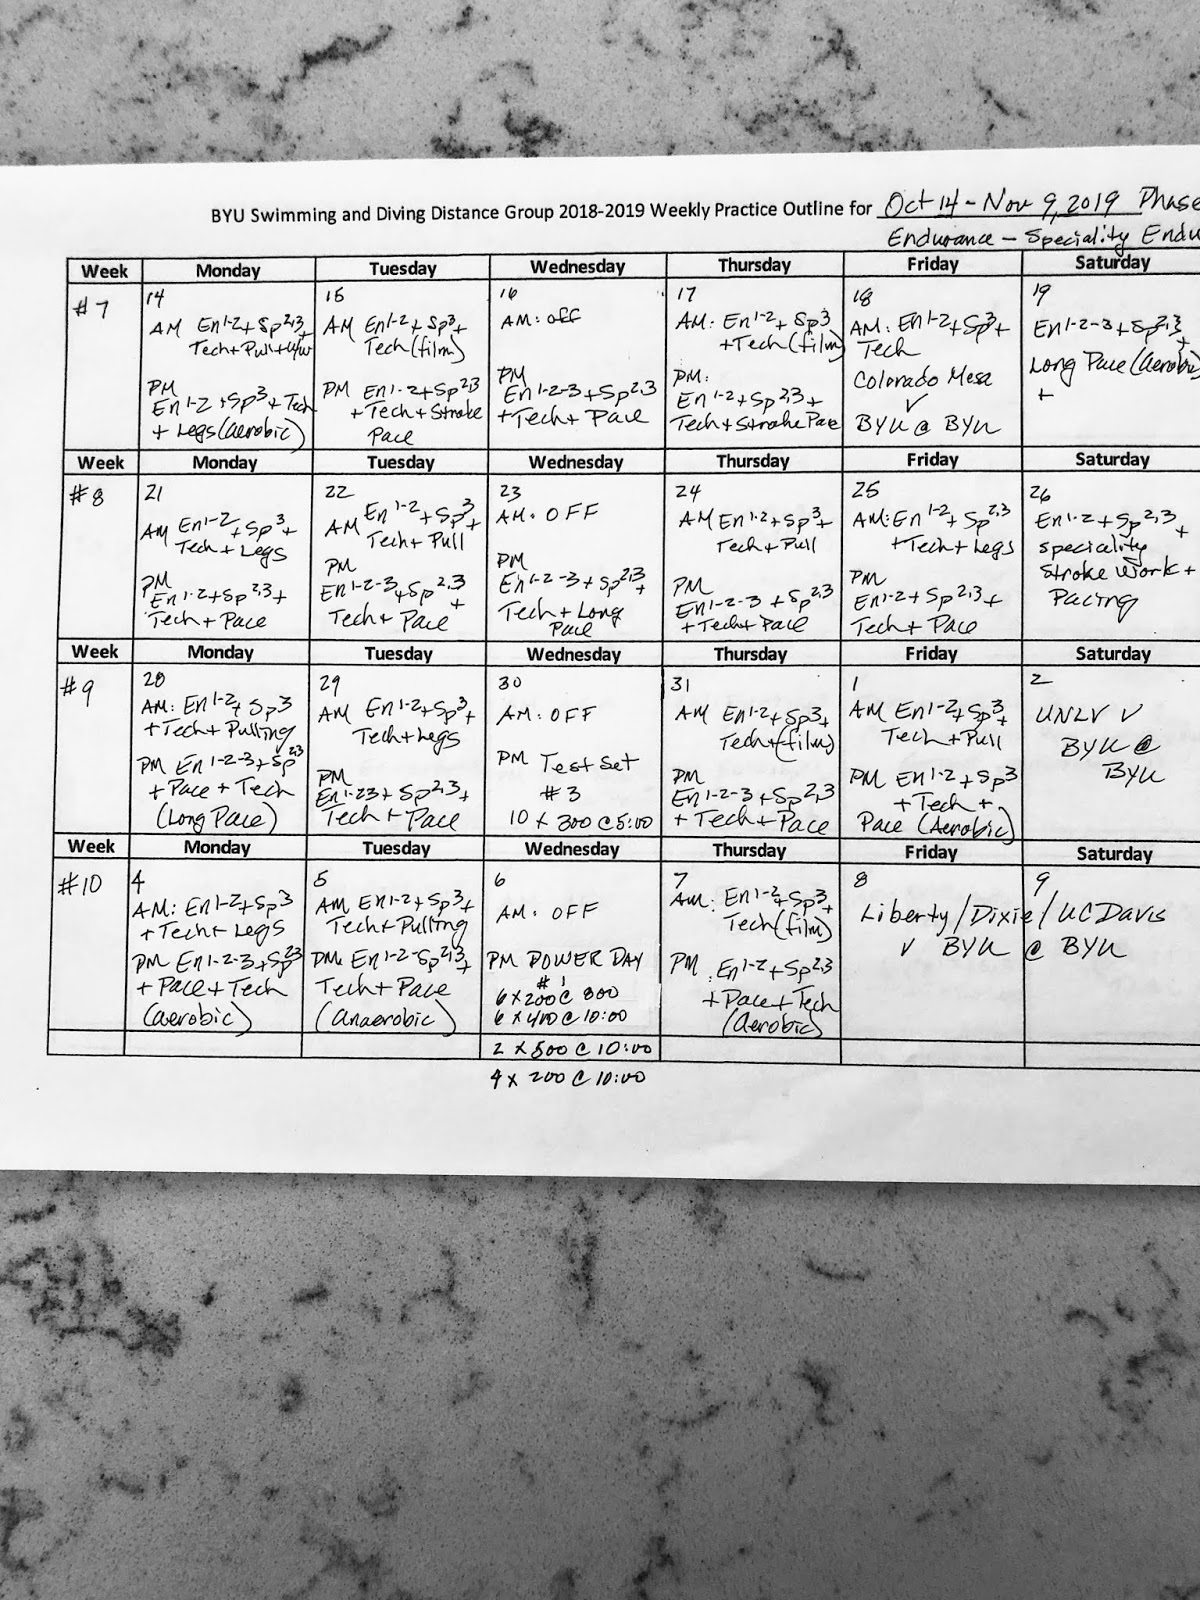 BYU Swimming and Diving Distance Group 2018-2019 Weekly Practice Outline for Oct 14 - Nov 9, 2019 Phase
Endurance - Speciality Endu
Week Monday Tuesday Wednesday Thursday Friday Saturday
#7
14
AM En1-2+Sp2,3+
Tech+Pull+u/w
PM
En1-2+Sp3+Tech
+Legs(Aerobic)
15
AM En1-2+Sp3+
Tech(film)
PM En1-2+Sp2,3
+Tech+Stroke
Pace
16
AM: Off
PM
En1-2-3+Sp2,3
+Tech+Pace
17
AM: En1-2+Sp3
+Tech(film)
PM:
En1-2+Sp2,3+
Tech+Stroke Pace
18
AM: En1-2+Sp3+
Tech
Colorado Mesa
V
BYU @ BYU
19
En1-2-3+Sp2,3+
Long Pace (Aerobic)
+
Week Monday Tuesday Wednesday Thursday Friday Saturday
#8
21
AM En1-2+Sp3+
Tech+Legs
PM
En1-2+Sp2,3+
Tech+Pace
22
AM En1-2+Sp3+
Tech+Pull
PM
En1-2-3+Sp2,3+
Tech+Pace
23
AM: OFF
PM
En1-2-3+Sp2,3+
Tech+Long
Pace
24
AM En1-2+Sp3+
Tech+Pull
PM
En1-2-3+Sp2,3
+Tech+Pace
25
AM: En1-2+Sp2,3
+Tech+Legs
PM
En1-2+Sp2,3+
Tech+Pace
26
En1-2+Sp2,3+
speciality
Stroke Work+
Pacing
Week Monday Tuesday Wednesday Thursday Friday Saturday
#9
28
AM: En1-2+Sp3
+Tech+Pulling
PM En1-2-3+Sp2,3
+Pace+Tech
(Long Pace)
29
AM En1-2+Sp3+
Tech+Legs
PM
En1-23+Sp2,3+
Tech+Pace
30
AM: OFF
PM Test Set
#3
10 x 300 @ 5:00
31
AM En1-2+Sp3+
Tech+(film)
PM
En1-2-3+Sp2,3
+Tech+Pace
1
AM En1-2+Sp3+
Tech+Pull
PM En1-2+Sp3
+Tech+
Pace (Aerobic)
2
UNLV V
BYU @
BYU
Week Monday Tuesday Wednesday Thursday Friday Saturday
#10
4
AM: En1-2+Sp3
+Tech+Legs
PM En1-2-3+Sp2,3
+Pace+Tech
(aerobic)
5
AM En1-2+Sp3+
Tech+Pulling
PM: En1-2-Sp2,3+
Tech+Pace
(Anaerobic)
6
AM: OFF
PM POWER DAY
#1
6x200@ 800
6x400@10:00
2 x 500 @ 10:00
4 x 200 @ 10:00
7
AM: En1-2+Sp3+
Tech(film)
PM: En1-2+Sp2,3
+Pace+Tech
(Aerobic)
8 9
Liberty/Dixie/UC Davis
V BYU @ BYU